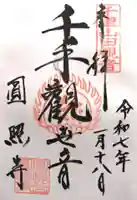 奉拝
令和七年
一月十八日
千手觀世音
圓照寺